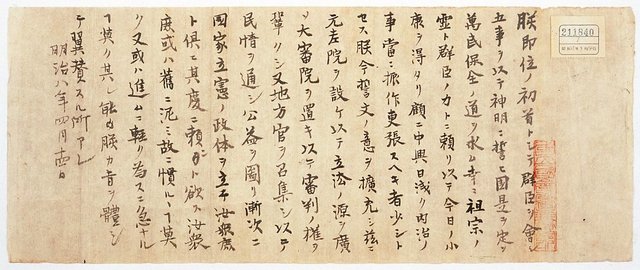 211840
朕即位ノ初首トシテ群臣ヲ會シ
五事ヲ以テ神明ニ誓ヒ國是ヲ定メ
萬民保全ノ道ヲ求ム幸ニ祖宗ノ
霊ト群臣ノ力トニ頼リ以テ今日ノ小
康ヲ得タリ顧ニ中興日浅ク内治ノ
事當ニ振作更張スヘキ者少シト
セス朕今誓文ノ意ヲ擴充シ茲ニ
元老院ヲ設ケ以テ立法ノ源ヲ廣
メ大審院ヲ置キ以テ審判ノ権ヲ
鞏クシ又地方官ヲ召集シ以テ
民情ヲ通シ公益ヲ圖リ漸次ニ
國家立憲ノ政体ヲ立テ汝衆庶
ト倶ニ其慶ニ頼ント欲ス汝衆
庶或ハ舊ニ泥ミ故ニ慣ルヽヿ莫
ク又或ハ進ムニ軽ク為スニ急ナル
ヿ莫ク其レ能朕カ旨ヲ體シ
テ翼賛スル所アレ
明治八年四月十四日